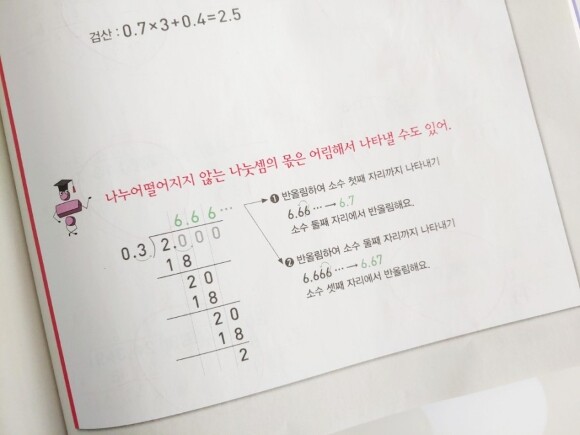 검산 : 0.7×3+0.4=2.5
나누어떨어지지 않는 나눗셈의 몫은 어림해서 나타낼 수도 있어.
6.66···
0.3)2.000
18
20
18
20
18
2
❶ 반올림하여 소수 첫째 자리까지 나타내기
6.66 ··· → 6.7
소수 둘째 자리에서 반올림해요.
❷ 반올림하여 소수 둘째 자리까지 나타내기
6.666 ··· → 6.67
소수 셋째 자리에서 반올림해요.